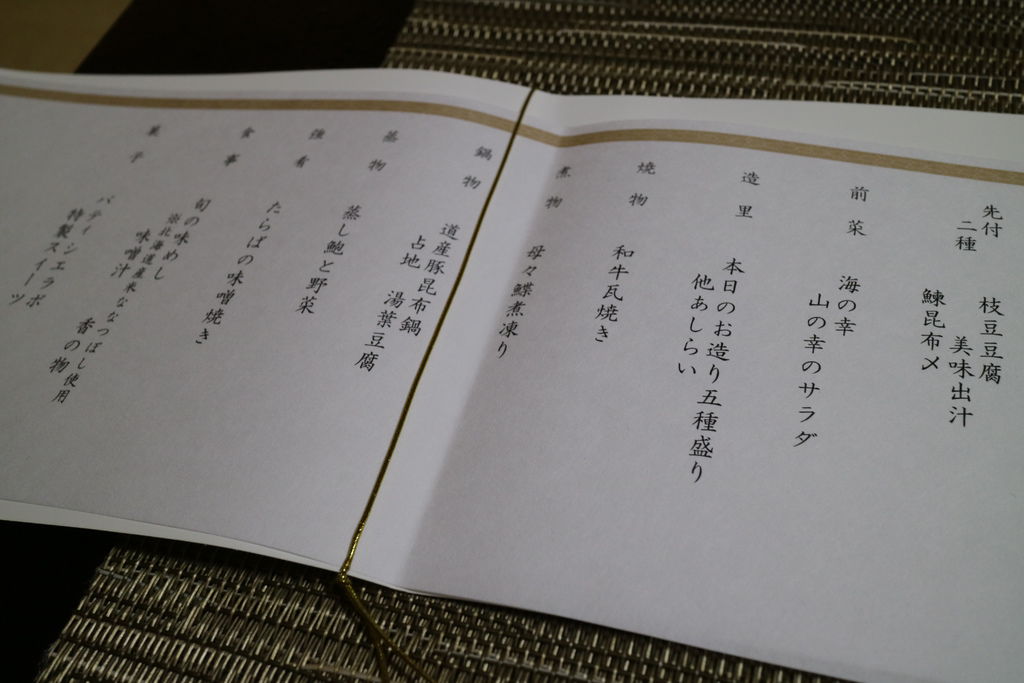 先付
二種
枝豆豆腐
美味出汁
鰊昆布〆
前菜
海の幸
山の幸のサラダ
造里
本日のお造り五種盛り
他あしらい
焼物
和牛瓦焼き
煮物
母々鰈煮凍り
鍋物
道産豚昆布鍋
占地 湯葉豆腐
蒸物
蒸し鮑と野菜
強肴
たらばの味噌焼き
食事
旬の味めし
※北海道産米ななつぼし使用
味噌汁 香の物
菓子
パティシエラボ
特製スイーツ